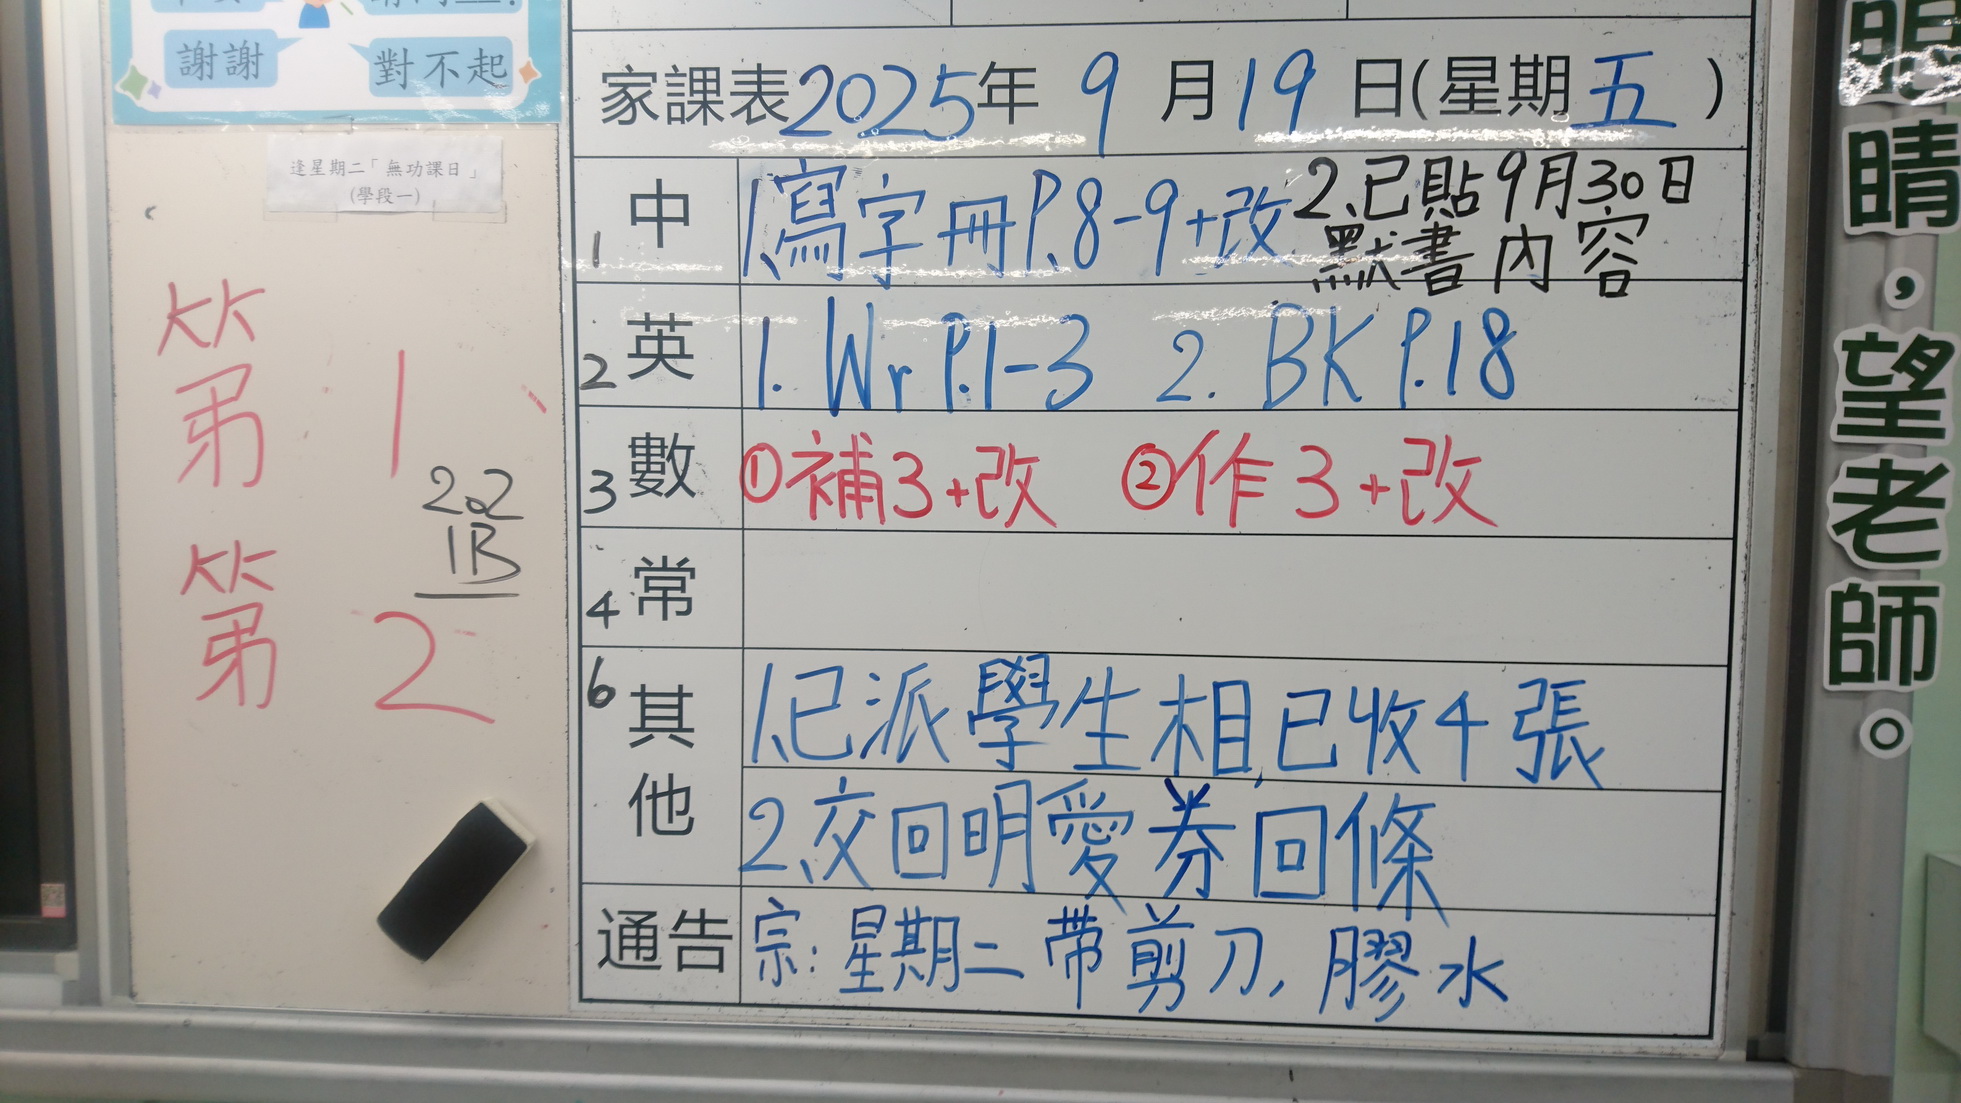 謝謝
對不起
逢星期二「無功課日」
(學段一)
第 1
2.2
1B
第 2
家課表2025年 9 月19 日(星期五 )
1 中 1.寫字冊P.8-9+改 2.已貼9月30日
默書內容
2 英 1. Wr P.1-3 2. BK P.18
3 數 ①補3+改 ②作3+改
4 常
6 其他 1.已派學生相,已收4張
2.交回明愛券回條
通告 宗:星期二帶剪刀,膠水
眼睛,望老師。